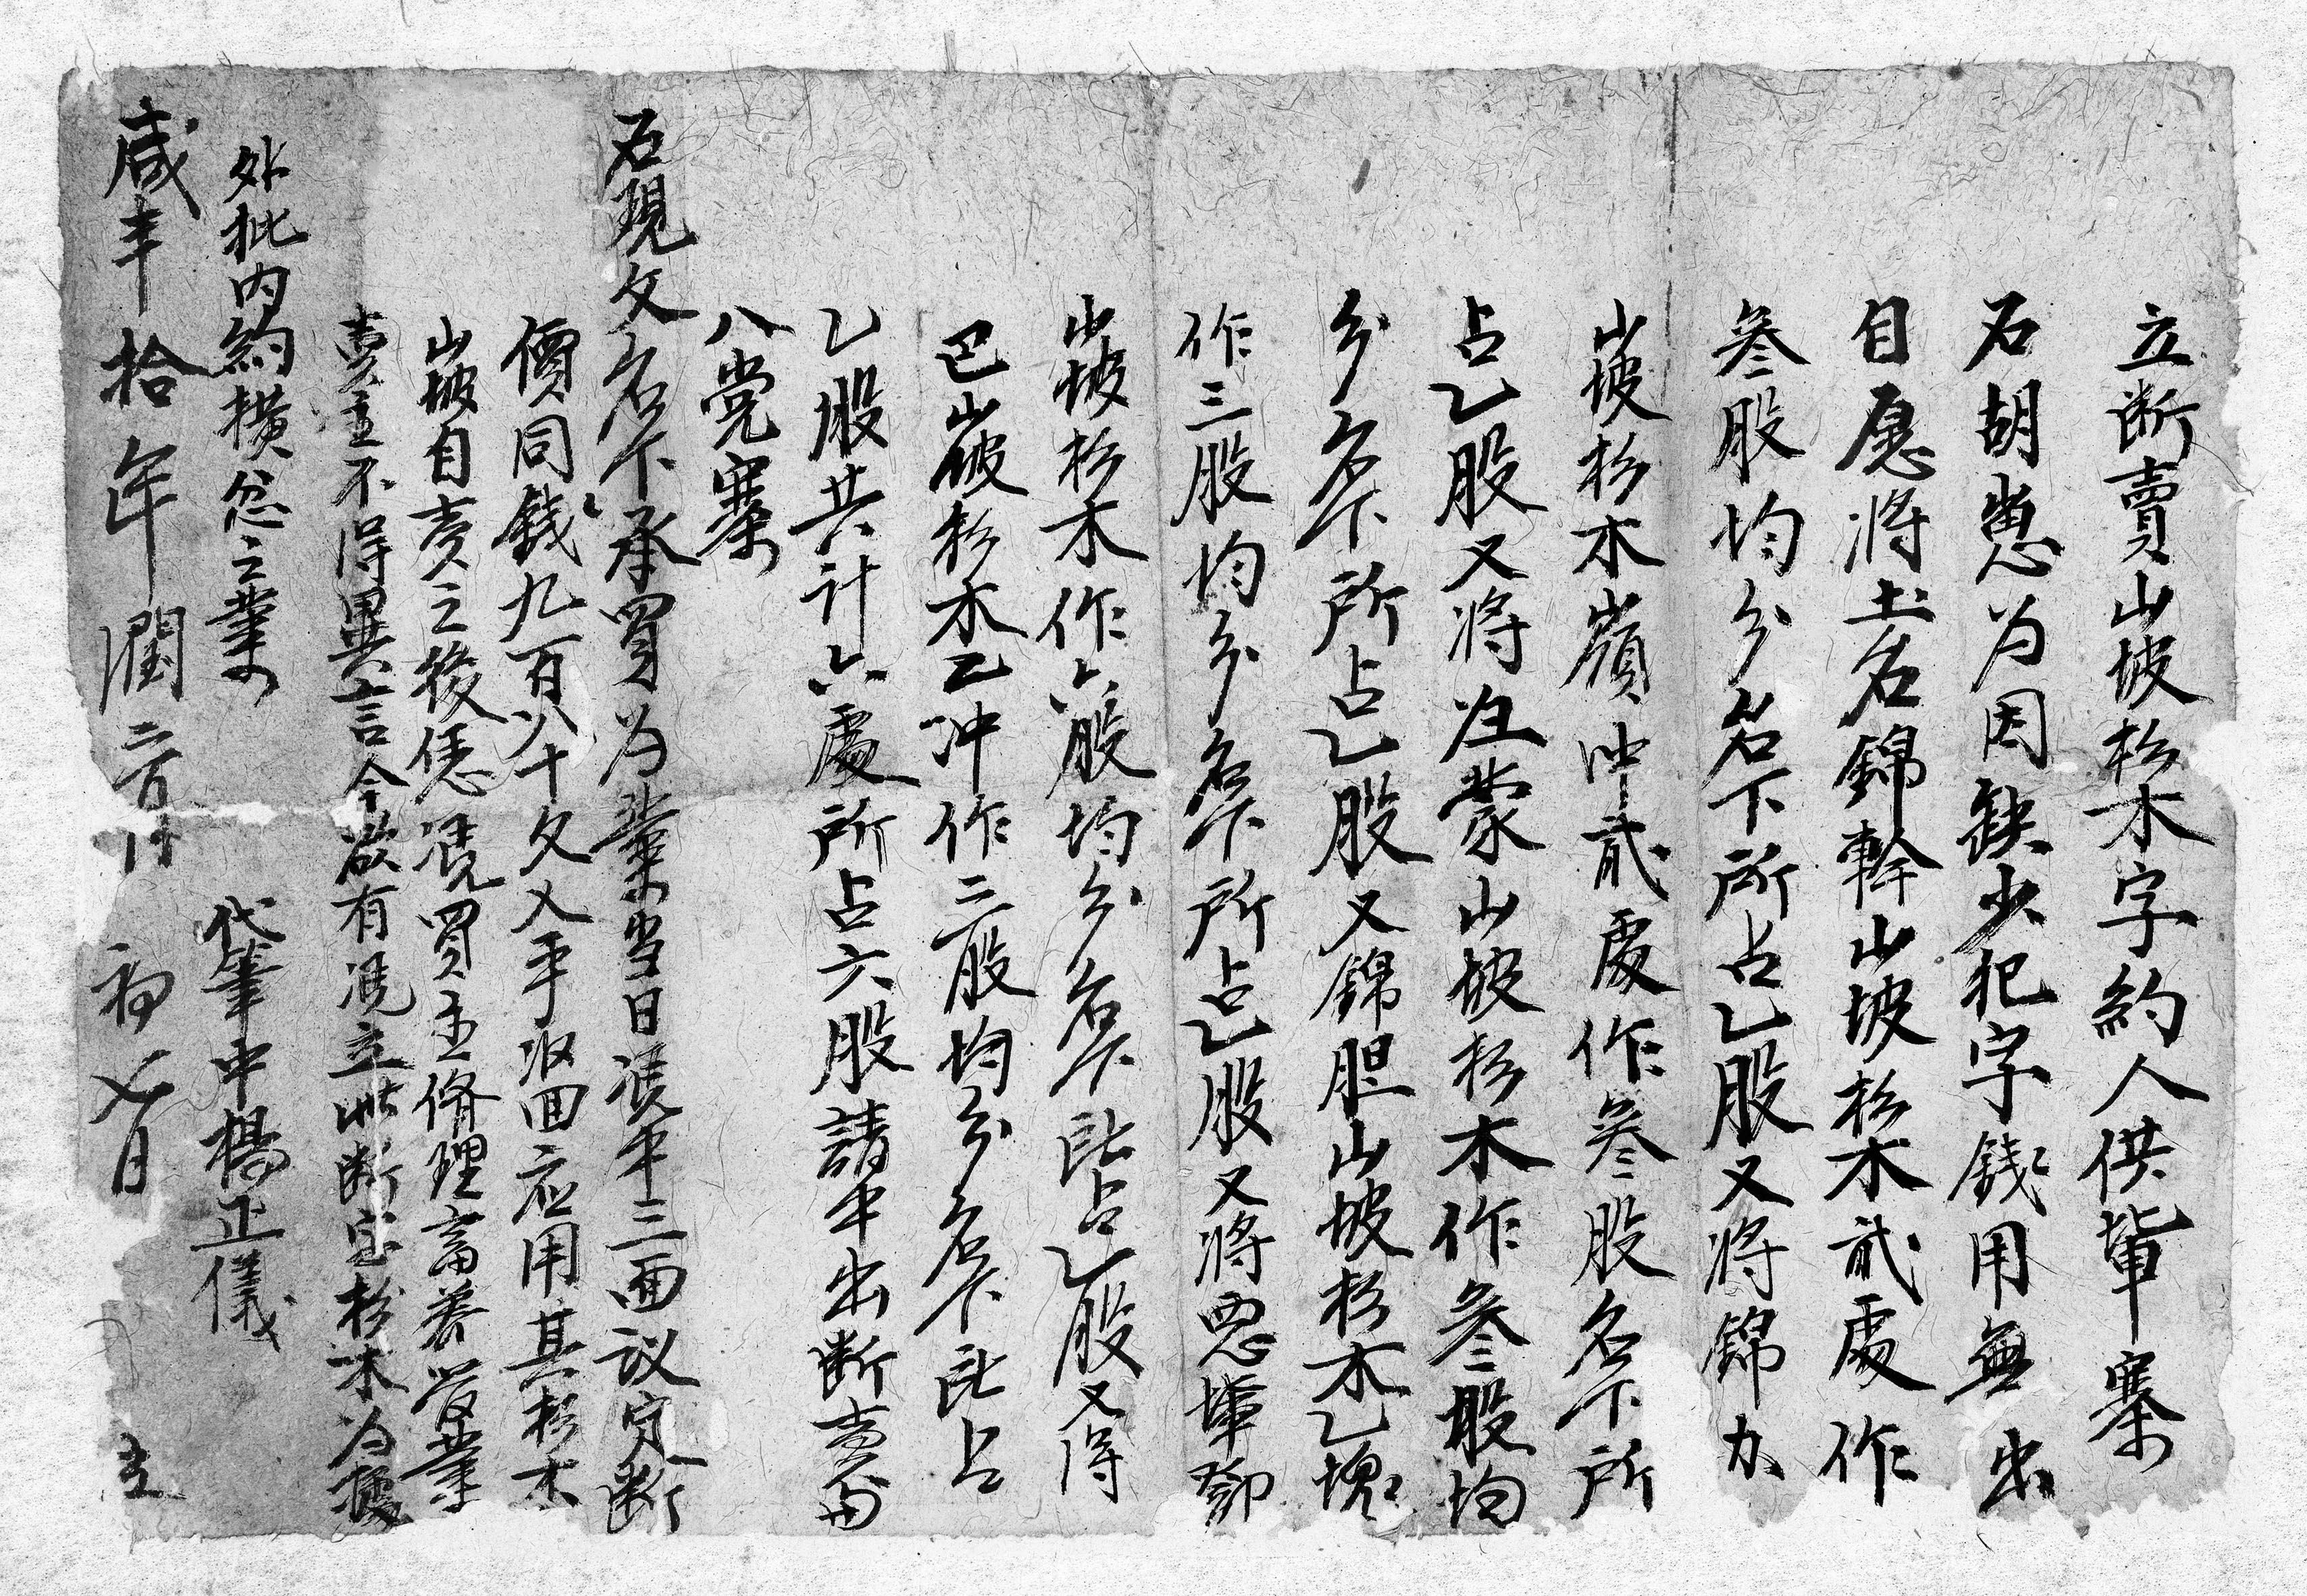 立断賣山坡杉木字約人供箪寨
石胡崽为因缺少犯字錢用無出
自愿将土名錦幹山坡杉木貳處作
叁股均分名下所占乙股又将錦力
山坡杉木嶺冲貳處作叁股名下所
占乙股又将注蒙山坡杉木作叁股均
分名下所占乙股又錦胆山坡杉木乙塊
作三股均分名下所占乙股又将
山坡杉木作六股均分名下所占乙股又得
巴山坡杉木乙冲作三股均分名下所占
乙股共計六處所占六股請中出断賣與
八党寨
石現文名下承買为業当日凭中三面议定断
價同錢九百八十文入手收回应用其杉木
山坡自卖之後凭買主脩理畜养管業
卖主不得異言今欲有凭立此断字杉木为據
外批内約横忿之業
代筆中楊正儀
咸丰拾年潤三月初七日 立